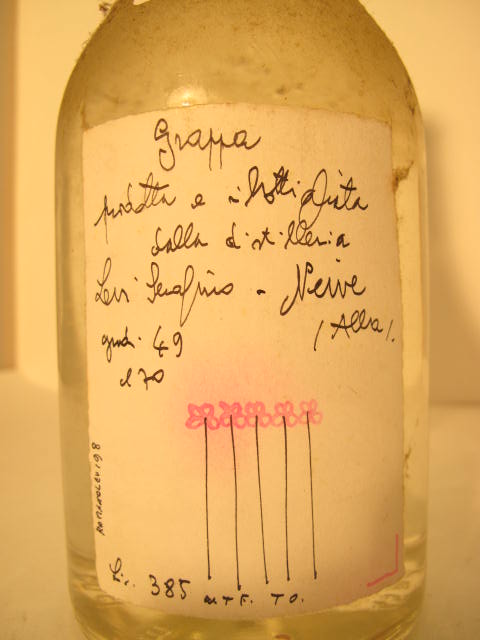 Grappa
prodotta e imbottigliata
dalla distilleria
Levi Serafino - Neive
(Alba).
gradi 49
cl 70
ROMANO LEVI 98
Lic. 385 U.T.F. TO.